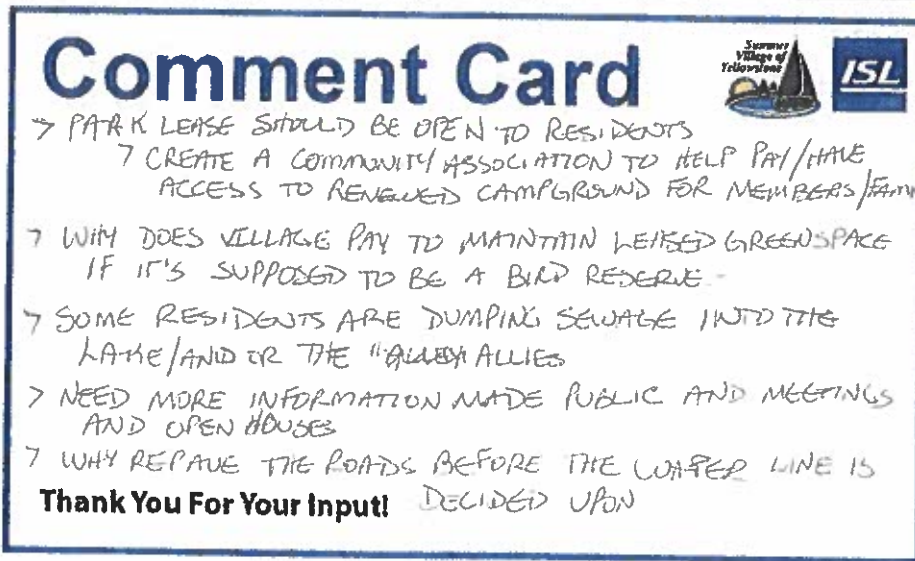 Comment Card
Summer
Village of
Yellowstone
ISL
> PARK LEASE SHOULD BE OPEN TO RESIDENTS
> CREATE A COMMUNITY ASSOCIATION TO HELP PAY/HAVE
ACCESS TO RENEWED CAMPGROUND FOR MEMBERS/FAM
> WHY DOES VILLAGE PAY TO MAINTAIN LEASED GREENSPACE
IF IT'S SUPPOSED TO BE A BIRD RESERVE
> SOME RESIDENTS ARE DUMPING SEWAGE INTO THE
LAKE/AND OR THE ALLIES
> NEED MORE INFORMATION MADE PUBLIC AND MEETINGS
AND OPEN HOUSES
> WHY REPAVE THE ROADS BEFORE THE WATER LINE IS
DECIDED UPON
Thank You For Your Input!